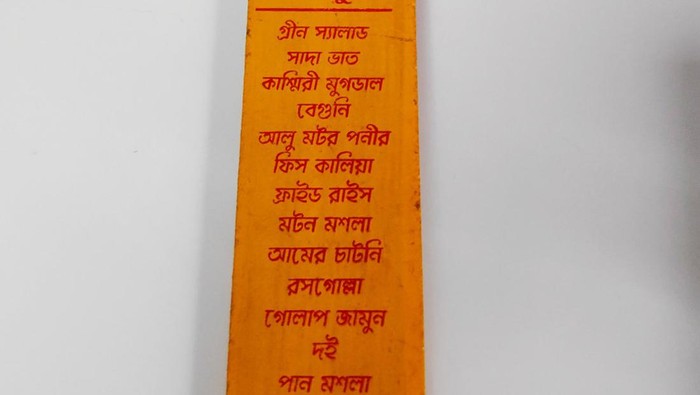 গ্রীন স্যালাড
সাদা ভাত
কাশ্মিরী মুগডাল
বেগুনি
আলু মটর পনীর
ফিস কালিয়া
ফ্রাইড রাইস
মটন মশলা
আমের চাটনি
রসগোল্লা
গোলাপ জামুন
দই
পান মশলা